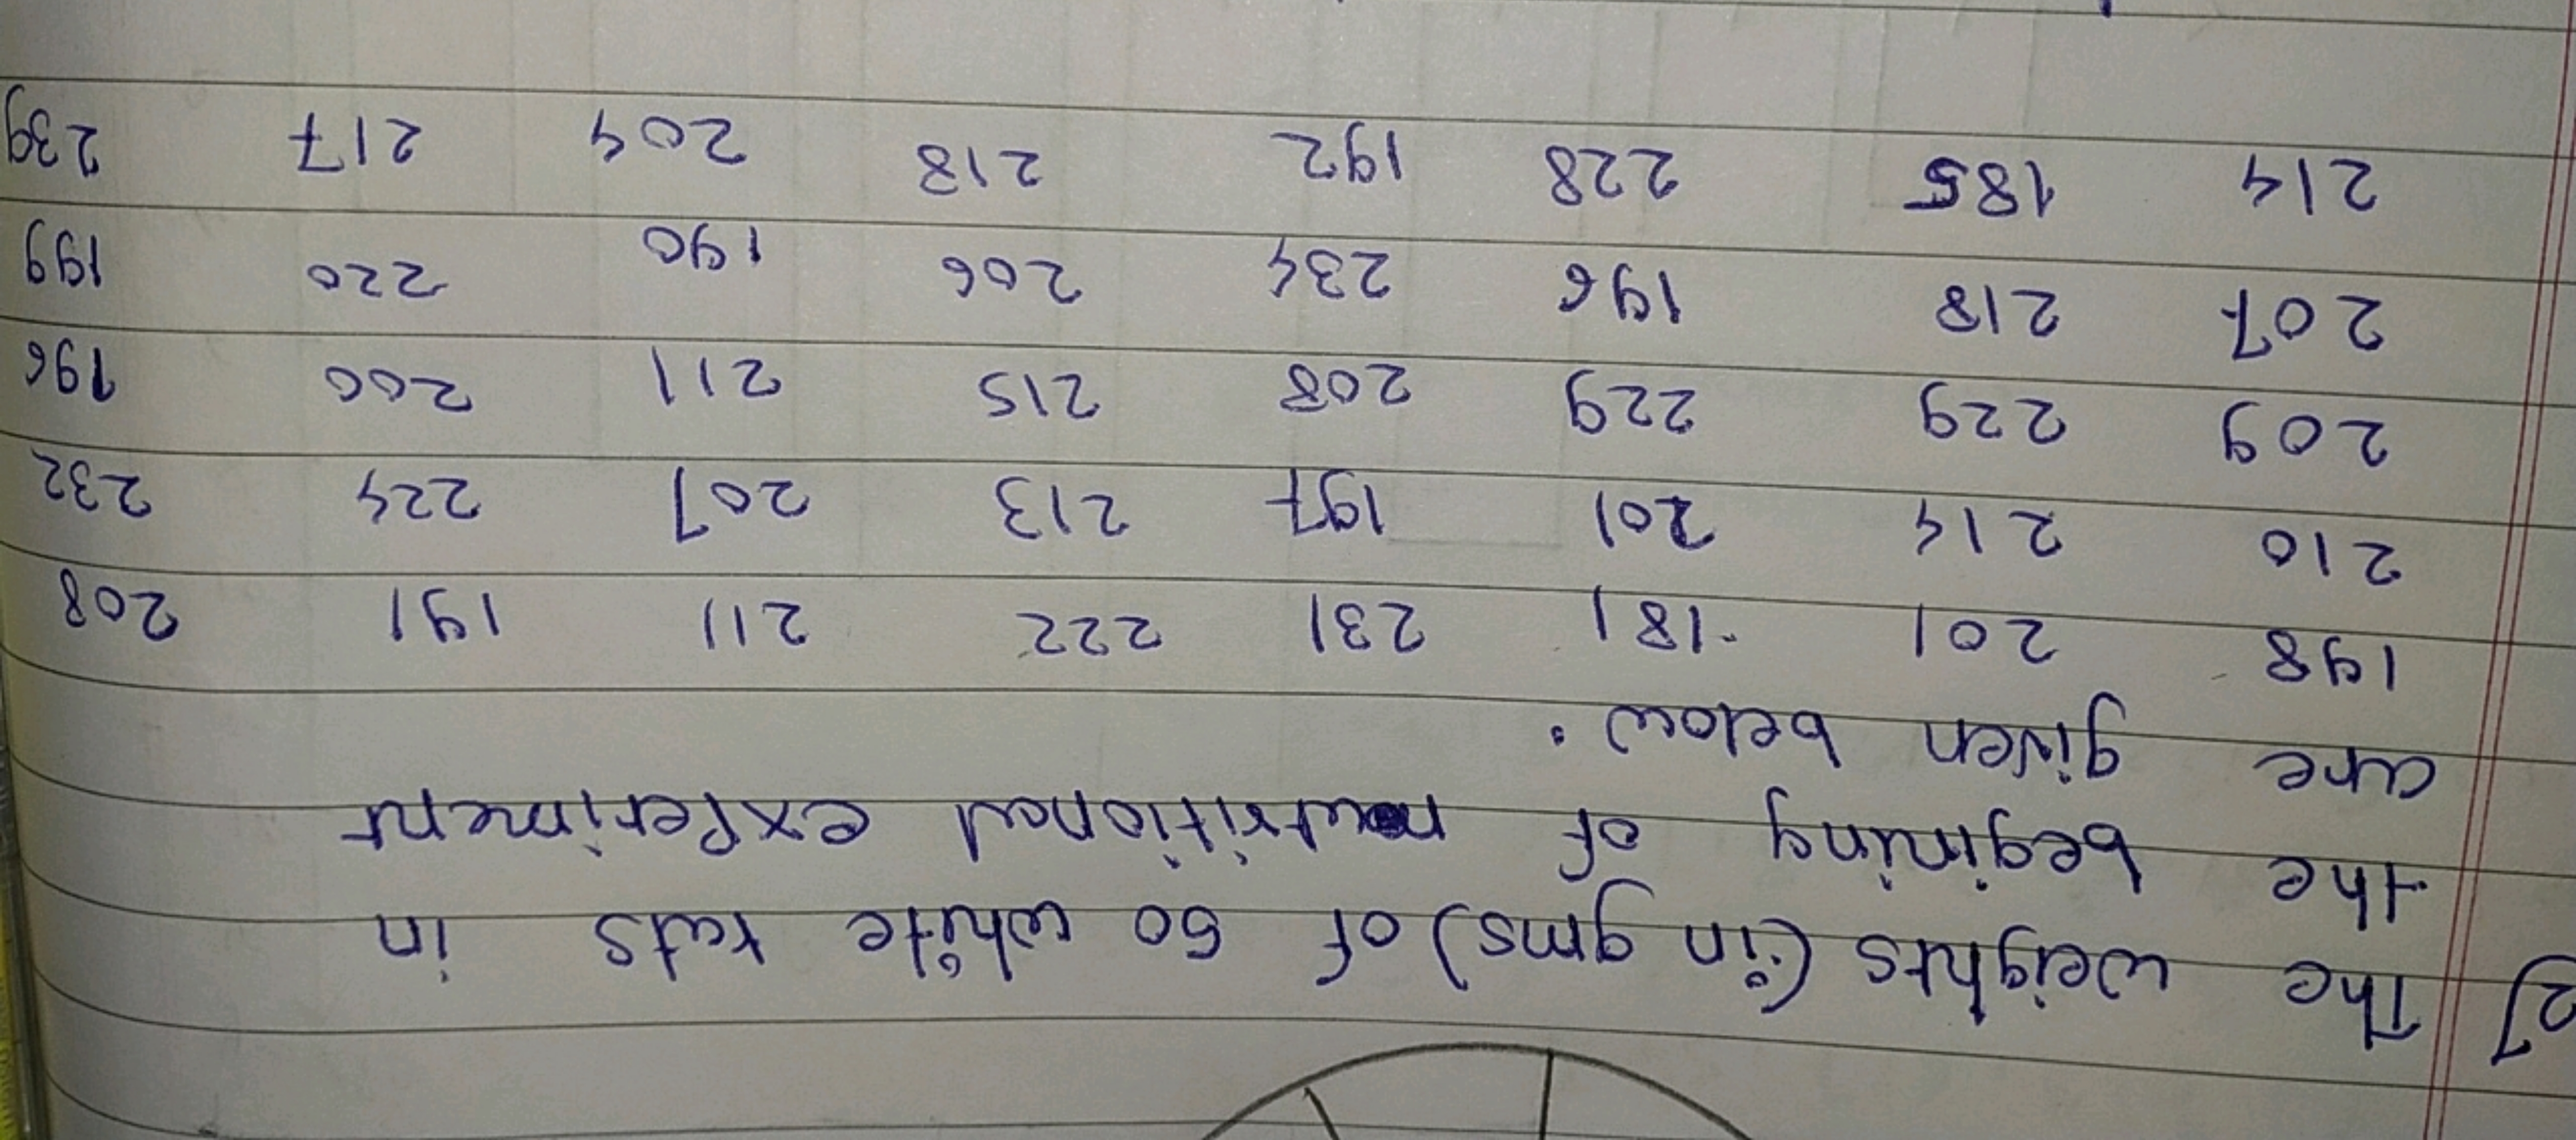 2) The weights (in gms) of 50 white rats in
the begining of nutritional experiment
are given below.
198 201 181 231 222 211 191 208
210 214 201 197 213 207 224 232
209 229 229 208 215 211 200 196
207 218 196 234 206 190 220 199
214 185 228 192 218 204 217 239